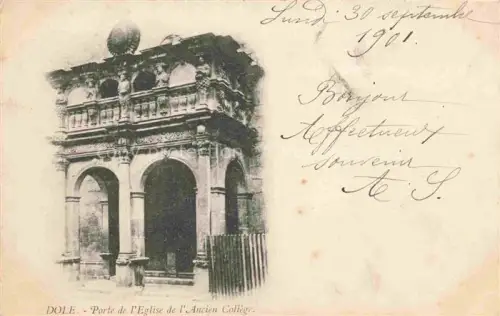 Lundi 30 septembre
1901.
Bonjour
Affectueux
souvenir
A. S.
DOLE. - Porte de l'Eglise de l'Ancien Collège.